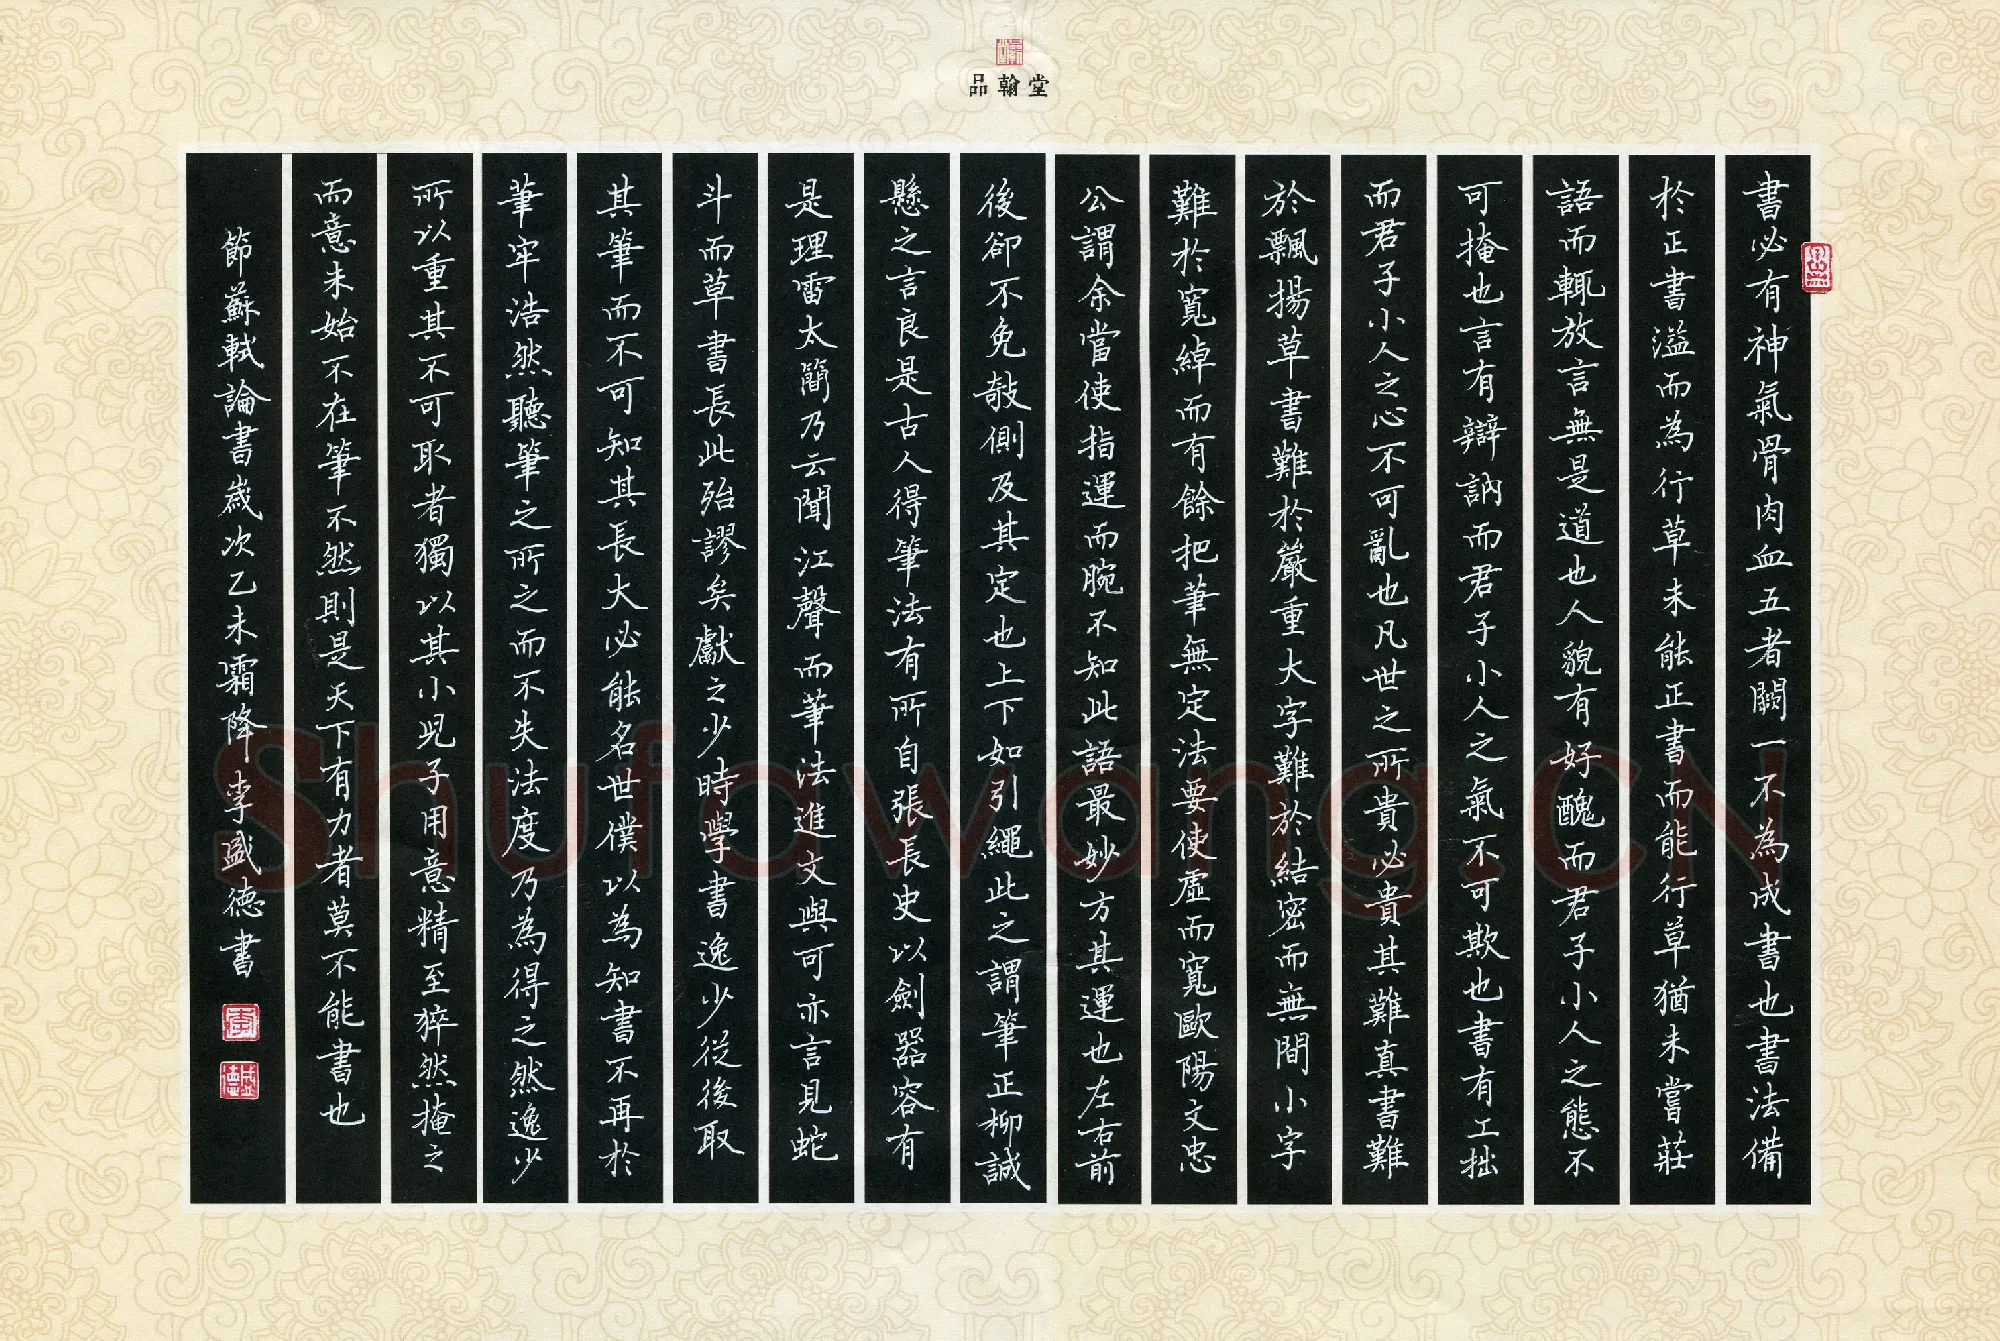 品翰堂
書必有神氣骨肉血五者闕一不為成書也書法備
於正書溢而為行草未能正書而能行草猶未嘗莊
語而輒放言無是道也人貌有好醜而君子小人之態不
可掩也言有辯訥而君子小人之氣不可欺也書有工拙
而君子小人之心不可亂也凡世之所貴必貴其難真書難
於飄揚草書難於嚴重大字難於結密而無間小字
難於寬綽而有餘把筆無定法要使虛而寬歐陽文忠
公謂余當使指運而腕不知此語最妙方其運也左右前
後卻不免攲側及其定也上下如引繩此之謂筆正柳誠
懸之言良是古人得筆法有所自張長史以劍器容有
是理雷太簡乃云聞江聲而筆法進文與可亦言見蛇
斗而草書長此殆謬矣獻之少時學書逸少從後取
其筆而不可知其長大必能名世僕以為知書不再於
筆牢浩然聽筆之所之而不失法度乃為得之然逸少
所以重其不可取者獨以其小児子用意精至猝然掩之
而意未始不在筆不然則是天下有力者莫不能書也
節蘇軾論書歲次乙未霜降李盛德書
李
盛德
Shufawang.CN